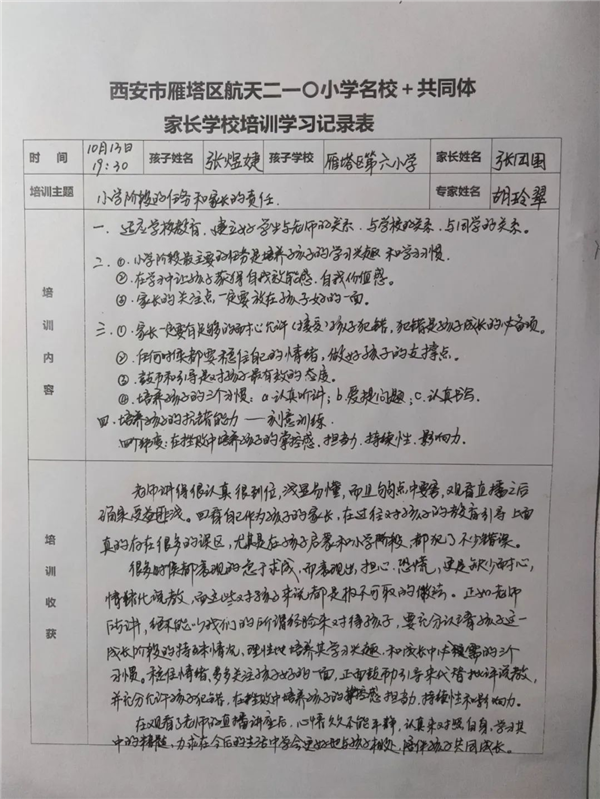 西安市雁塔区航天二一〇小学名校+共同体
家长学校培训学习记录表
时 间 10月13日 19:30 孩子姓名 张煜婕 孩子学校 雁塔区第六小学 家长姓名 张团围
培训主题 小学阶段的任务和家长的责任. 专家姓名 胡玲翠
培训内容
一. 适应学校教育,建立好学生与老师的关系.与学校的关系.与同学的关系。
二. ①.小学阶段最主要的任务是培养孩子的学习兴趣和学习习惯.
②.在学习中让孩子获得自我效能感.自我价值感。
③.家长的关注点一定要放在孩子好的一面.
三. ①.家长一定要有足够的耐心允许(接受)孩子犯错,犯错是孩子成长的必备项。
②.任何时候都要稳住自己的情绪,做好孩子的支撑点。
③.鼓励和引导是对孩子最有效的态度。
④.培养孩子的3个习惯:a.认真听讲;b.爱提问题;c.认真书写.
四. 培养孩子的抗错能力——刻意训练.
四个纬度:在挫败中培养孩子的掌控感,担当力.持续性.影响力.
培训收获
老师讲得很认真很到位,浅显易懂,而且句句点中要害,观看直播之后
确实受益匪浅。回看自己作为孩子的家长,在过往对孩子的教育引导上面
真的存在很多的误区,尤其是在孩子启蒙和小学阶段,都犯了不少错误。
很多时候都表现的急于求成,而表现出担心.恐慌,更是缺少耐心,
情绪化说教,而这些对孩子来说都是极不可取的做法。正如老师
所讲,绝不能以我们的所谓经验来对待孩子,要充分认清孩子这一
成长阶段的特殊情况,理性地培养其学习兴趣和成长中必须要的三个
习惯。稳住情绪,多多关注孩子好的一面,正面鼓励引导来代替批评说教,
并充分允许孩子犯错,在挫败中培养孩子的掌控感担当力,持续性和影响力。
在观看了老师的直播讲座后,心情久久不能平静,认真来对照自身,学习其
中的精髓,力求在今后的生活中学会更好地与孩子相处,陪伴孩子共同成长。